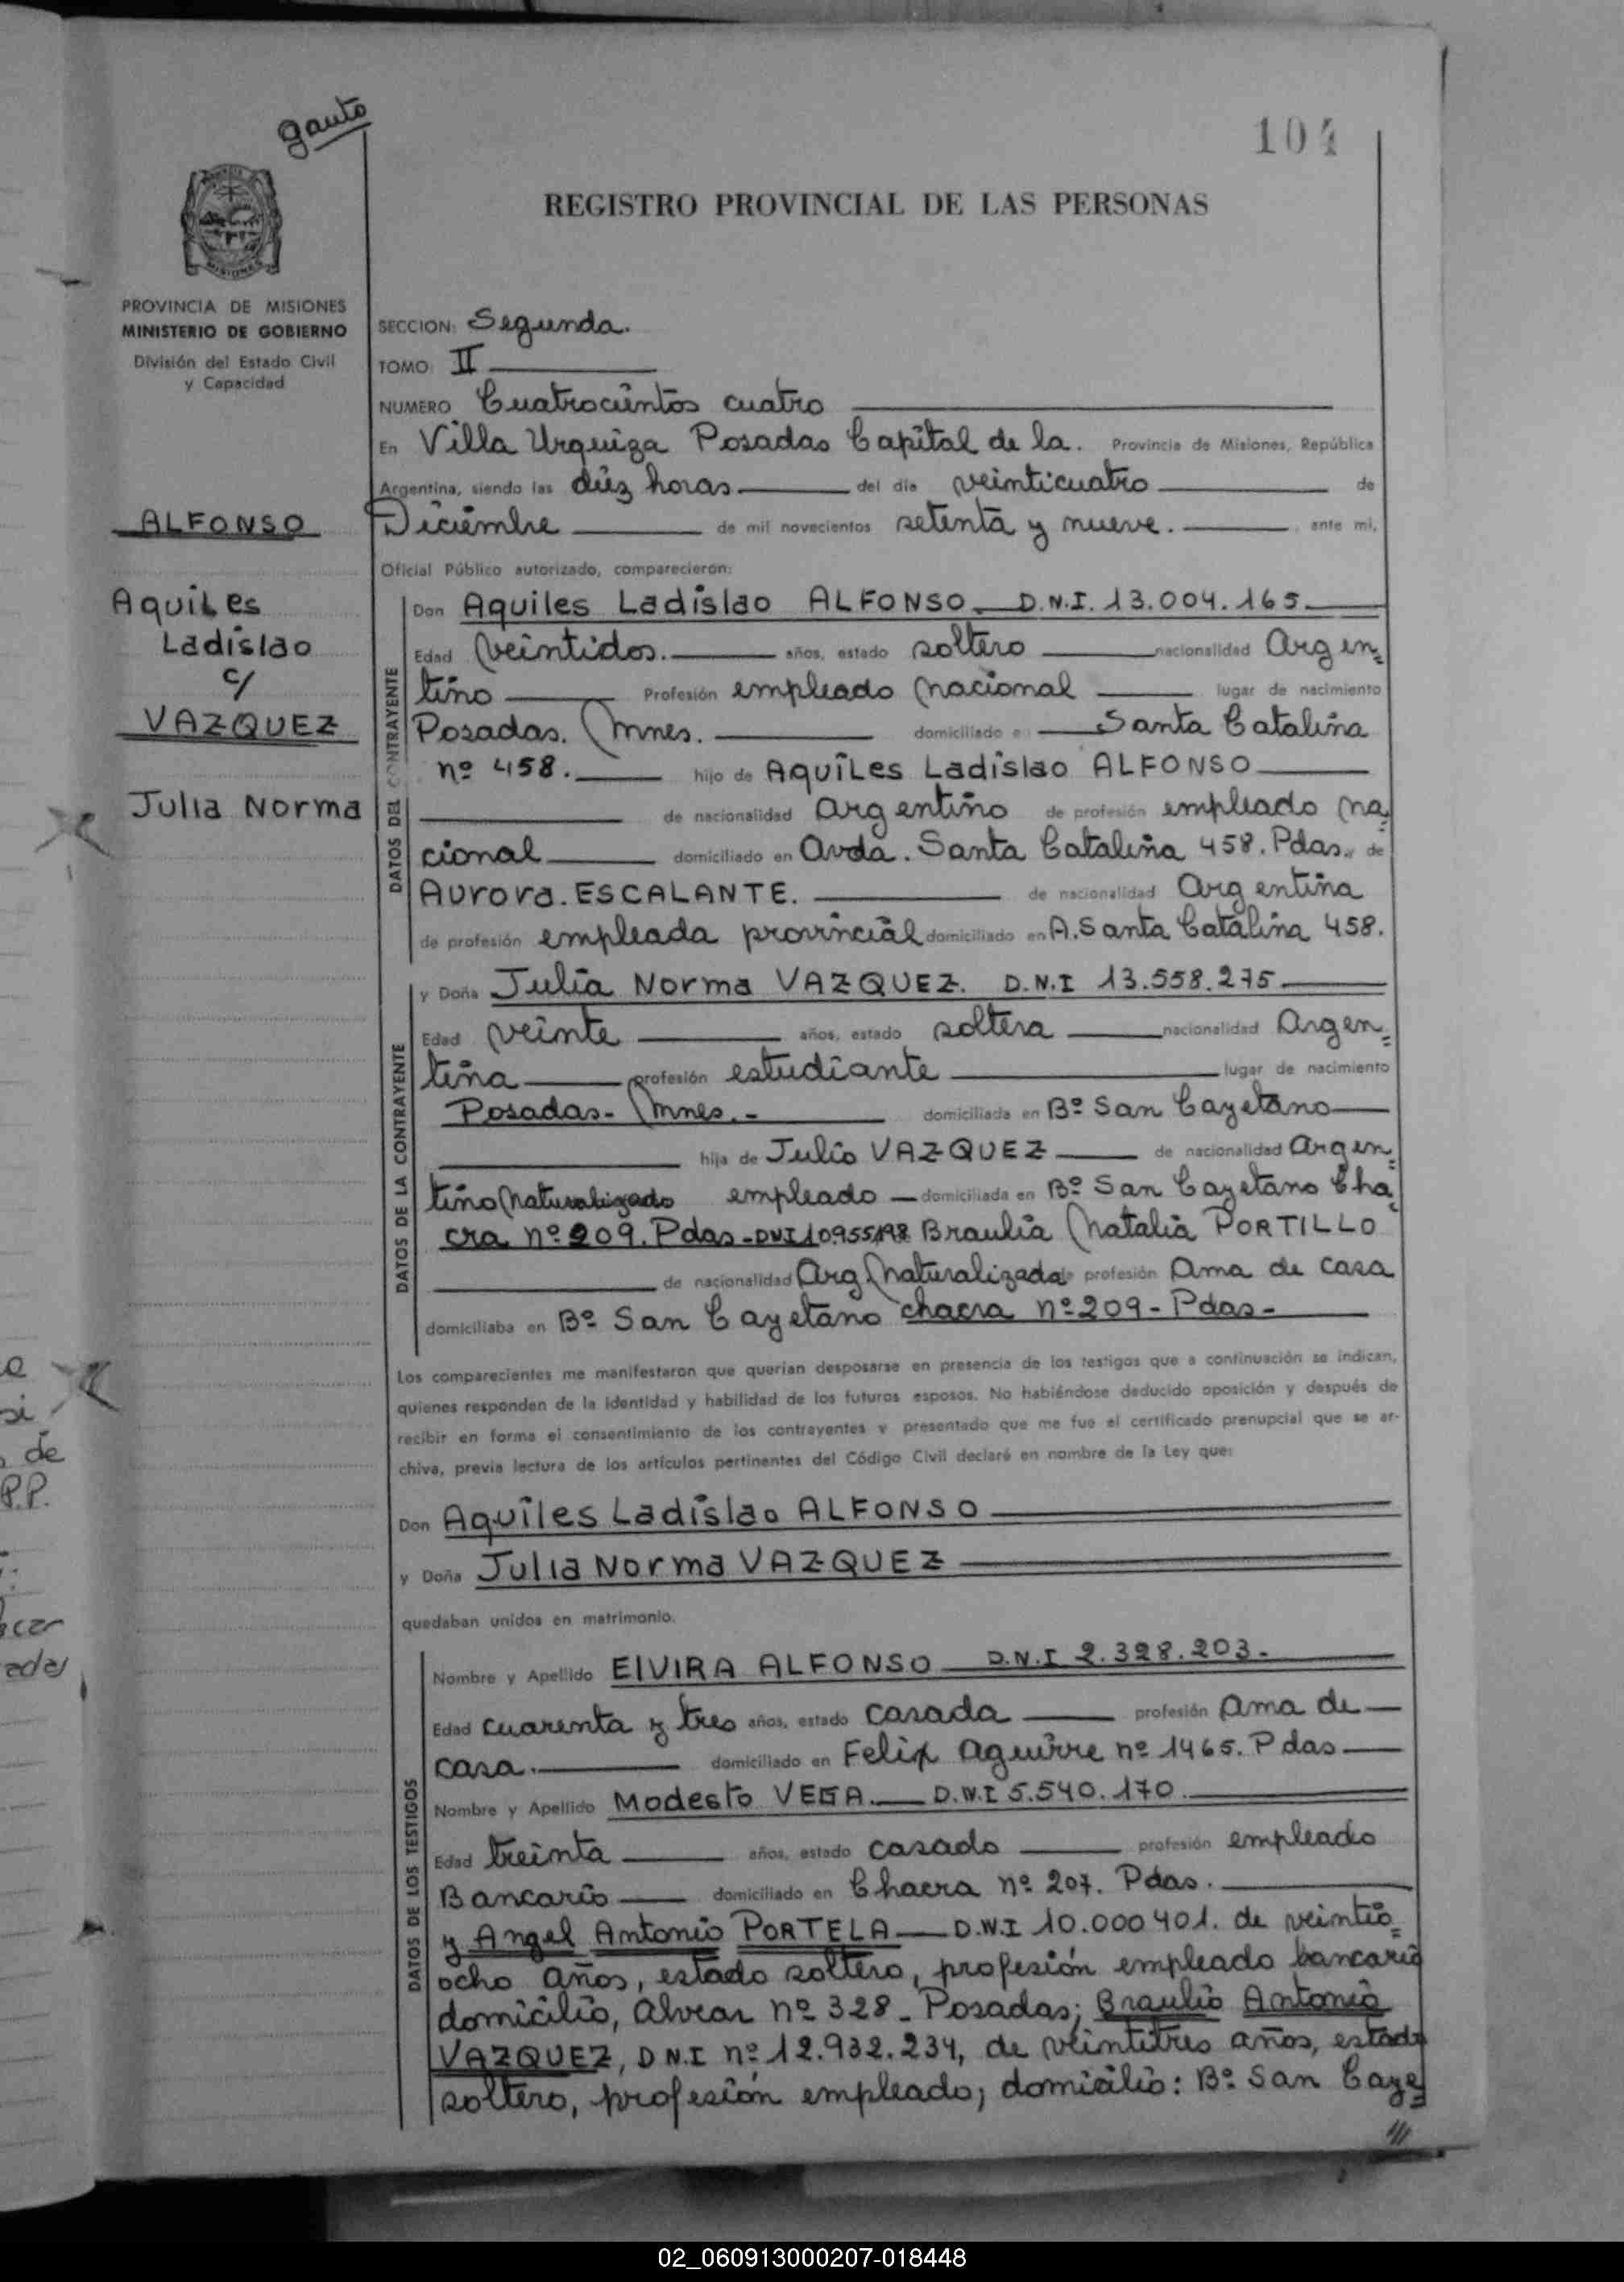 gauto
104
REGISTRO PROVINCIAL DE LAS PERSONAS
PROVINCIA DE MISIONES
MINISTERIO DE GOBIERNO
División del Estado Civil
y Capacidad
ALFONSO
Aquiles
Ladislao
c/
VAZQUEZ
Julia Norma
SECCION: Segunda.
TOMO: II
NUMERO Cuatrocientos cuatro
En Villa Urquiza Posadas Capital de la. Provincia de Misiones, República
Argentina, siendo las diez horas del día veinticuatro de
Diciembre de mil novecientos setenta y nueve. ante mi,
Oficial Público autorizado, comparecieron:
DATOS DEL CONTRAYENTE
Don Aquiles Ladislao ALFONSO D.N.I. 13.004.165
Edad veintidos. años, estado soltero nacionalidad Argen=
tino Profesión empleado nacional lugar de nacimiento
Posadas. Mnes. domiciliado e Santa Catalina
nº 458. hijo de Aquiles Ladislao ALFONSO
de nacionalidad Argentino de profesión empleado na=
cional domiciliado en Avda. Santa Catalina 458. Pdas. y de
Aurora. ESCALANTE. de nacionalidad Argentina
de profesión empleada provincial domiciliado en A. Santa Catalina 458.
DATOS DE LA CONTRAYENTE
y Doña Julia Norma VAZQUEZ. D.N.I 13.558.275
Edad veinte años, estado soltera nacionalidad Argen=
tina profesión estudiante lugar de nacimiento
Posadas- Mnes.- domiciliada en Bº San Cayetano
hija de Julio VAZQUEZ de nacionalidad Argen=
tino naturalizado empleado domiciliada en Bº San Cayetano Cha=
cra nº 209. Pdas- DNI 10.955.198 Braulia Natalia PORTILLO
de nacionalidad Arg naturalizada de profesión Ama de casa
domiciliaba en Bº San Cayetano chacra nº 209- Pdas-
Los comparecientes me manifestaron que querían desposarse en presencia de los testigos que a continuación se indican,
quienes responden de la identidad y habilidad de los futuros esposos. No habiéndose deducido oposición y después de
recibir en forma el consentimiento de los contrayentes y presentado que me fue el certificado prenupcial que se ar-
chiva, previa lectura de los artículos pertinentes del Código Civil declaré en nombre de la Ley que:
Don Aquiles Ladislao ALFONSO
y Doña Julia Norma VAZQUEZ
quedaban unidos en matrimonio.
DATOS DE LOS TESTIGOS
Nombre y Apellido ElVIRA ALFONSO D.N.I 2.328.203.
Edad cuarenta y tres años, estado casada profesión Ama de
casa. domiciliado en Felix Aguirre nº 1465. Pdas
Nombre y Apellido Modesto VEGA. D.N.I 5.540.170
Edad treinta años, estado casado profesión empleado
Bancario domiciliado en Chacra nº 207. Pdas.
y Angel Antonio PORTELA D.N.I 10.000401. de veintio=
ocho años, estado soltero, profesión empleado bancario
domicilio, Alvear nº 328- Posadas; Braulio Antonio
VAZQUEZ, D N.I nº 12.932.234, de veintitres años, estado
soltero, profesión empleado; domicilio: Bº San Caye=
///
02_060913000207-018448